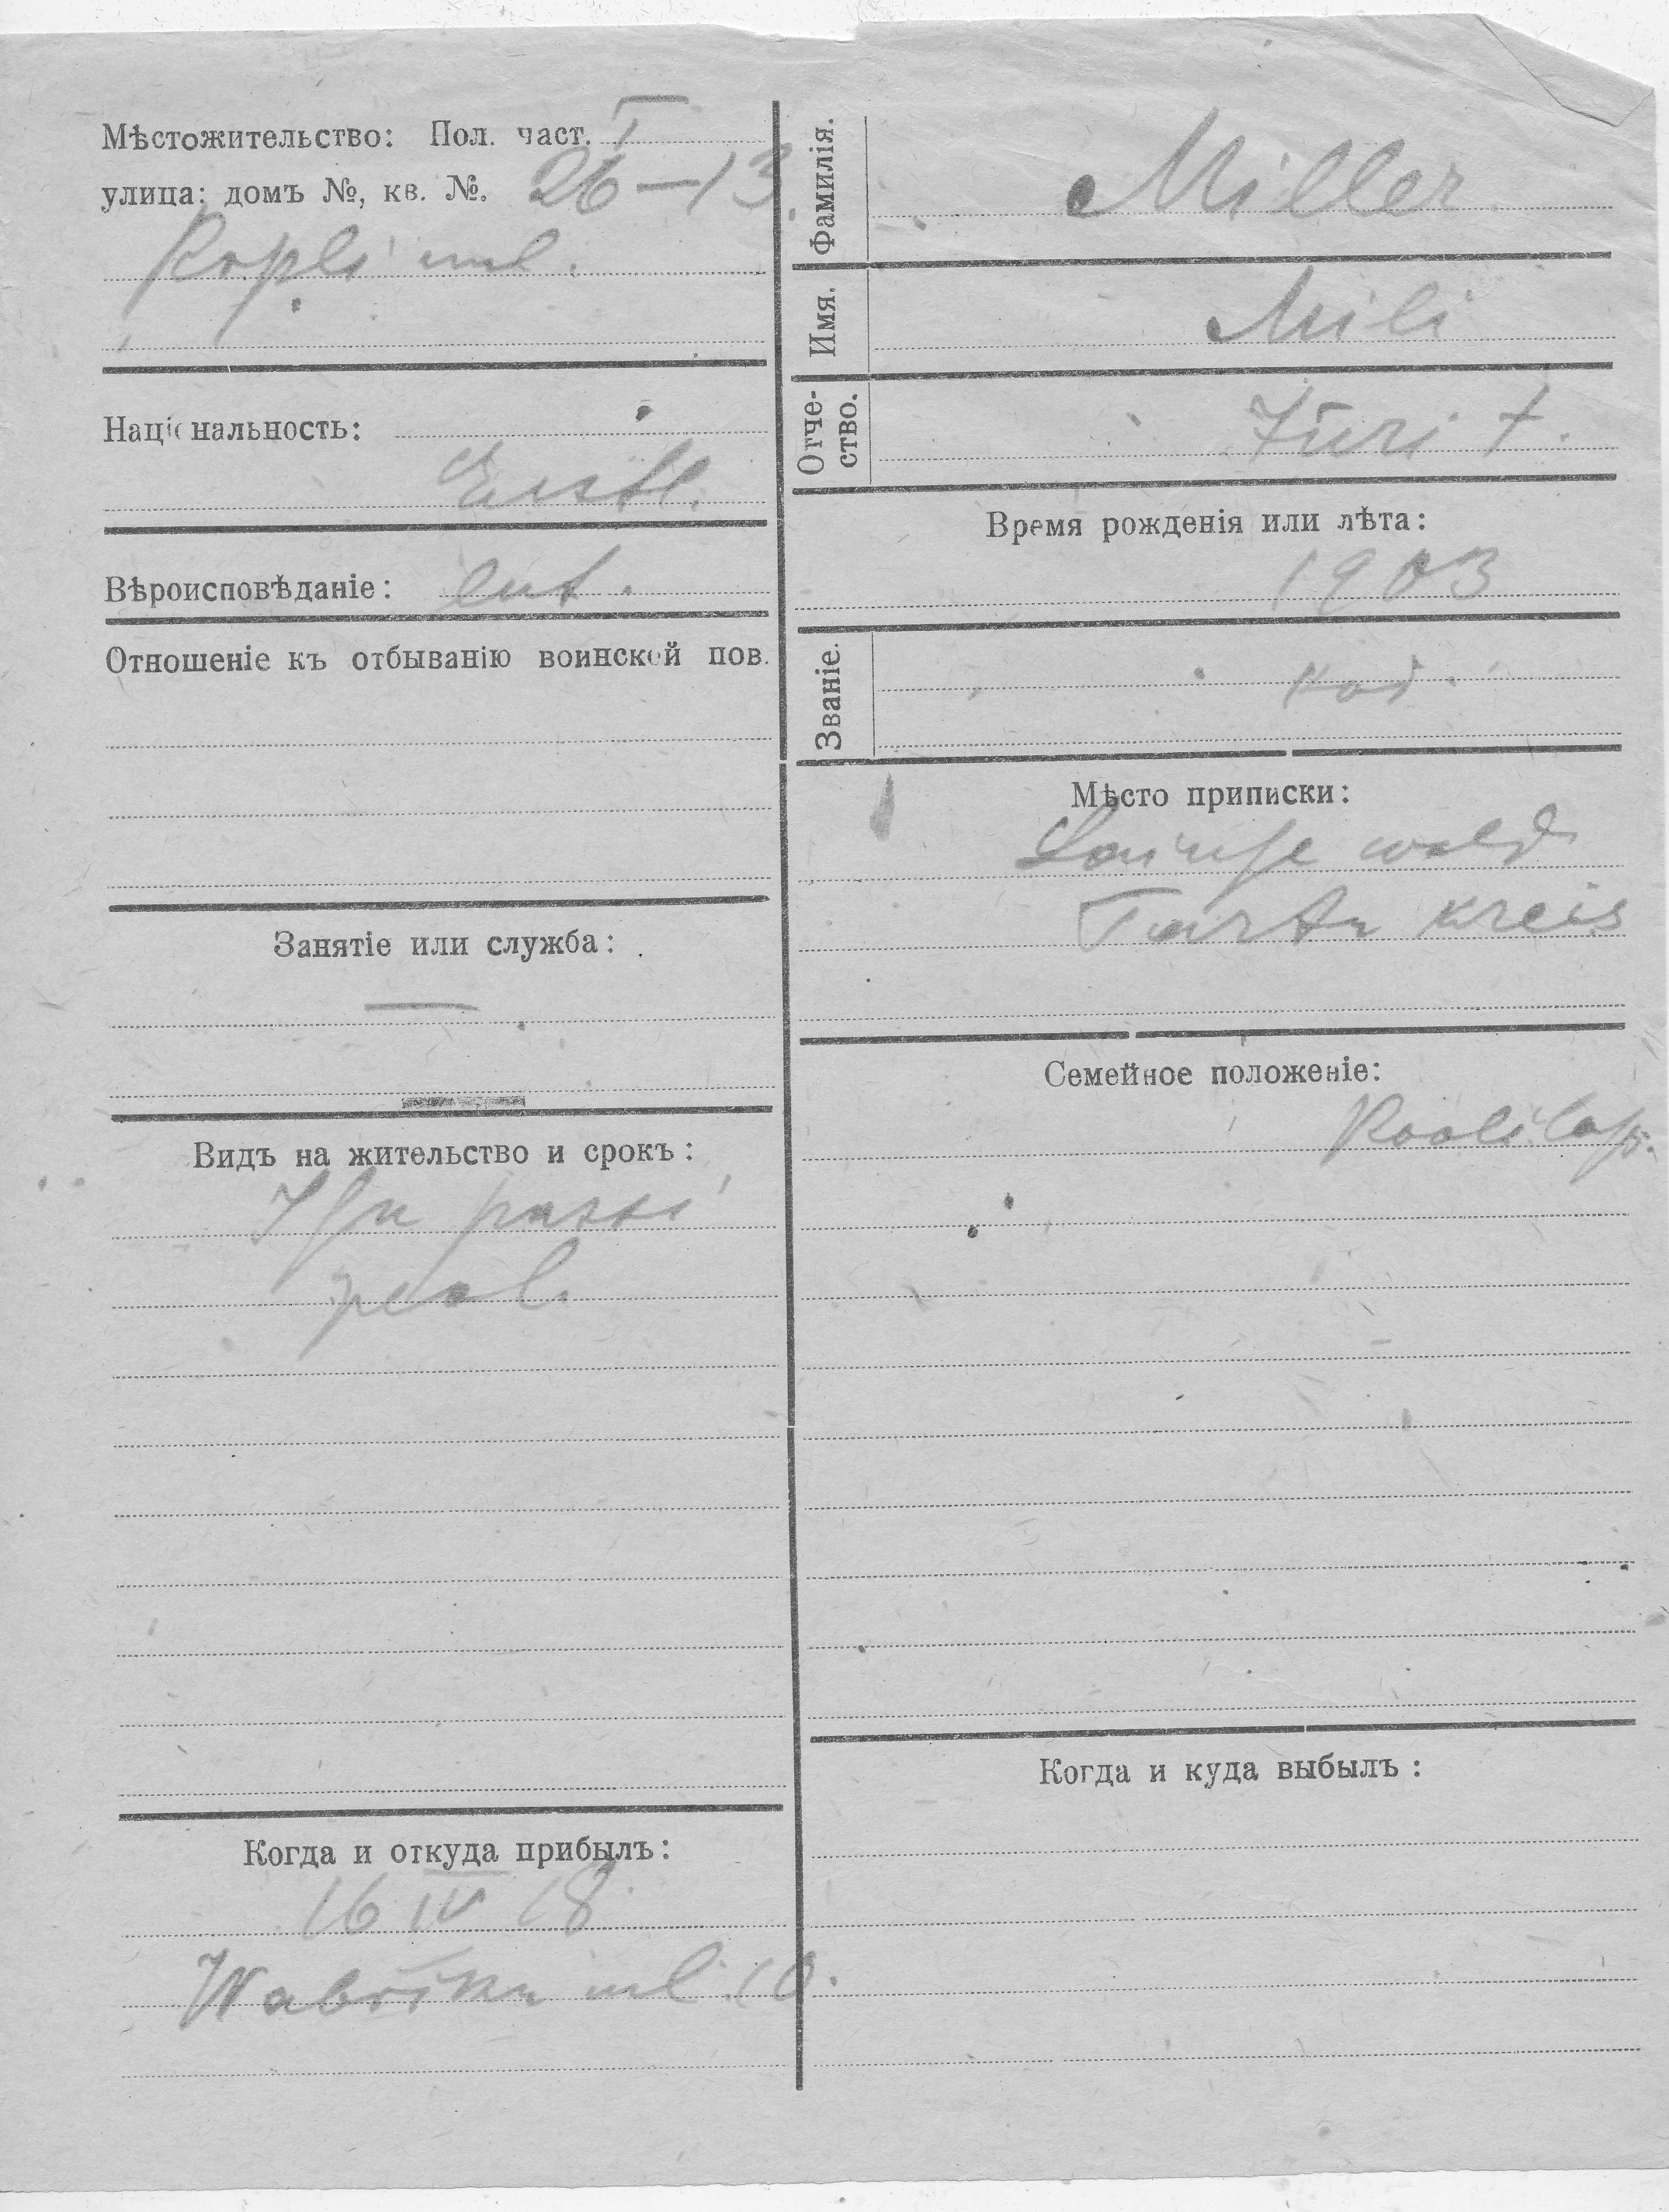 Мѣстожительство: Пол. част. I
улица: домъ №, кв. №. 26-13.
Kopli uul.
Національность:
Eestl.
Вѣроисповѣданіе: lut.
Отношеніе къ отбыванію воинской пов.
Занятіе или служба:
—
Видъ на жительство и срокъ:
Isa passi
peal.
Когда и откуда прибылъ:
16 IV 18
Wabriku uul. 10.
Фамилія. Miller
Имя. Mili
Отче-
ство. Jüri t.
Время рожденія или лѣта:
1903
Званіе.
Мѣсто приписки:
wald
Tartu kreis
Семейное положеніе:
Koolilaps.
Когда и куда выбылъ: